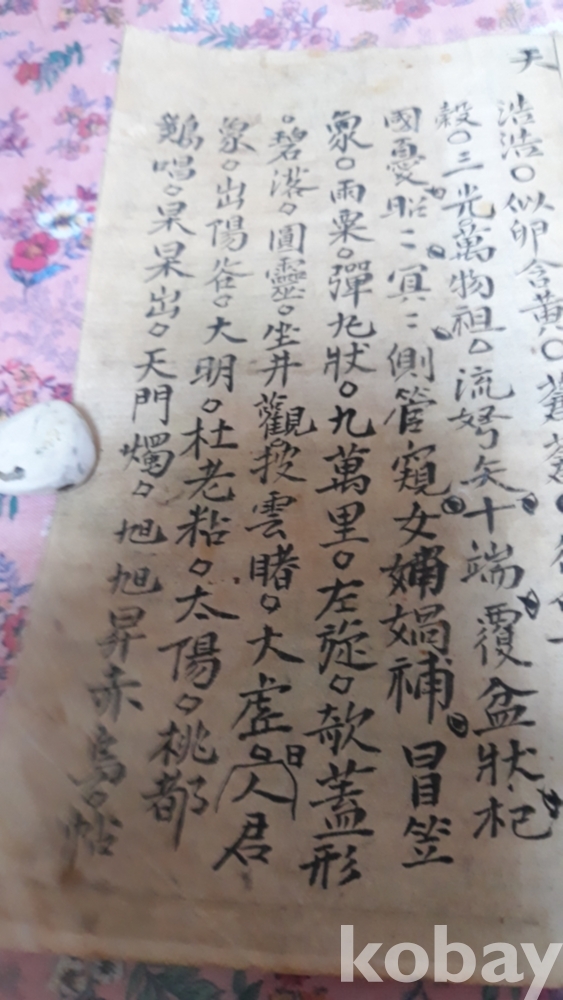 天
浩浩○似卵含黃○蒼蒼
穀○三光萬物祖○流弩矢十端覆盆狀杞
國憂昭〻冥〻側管窺女媧媧補冒笠
象○雨粟○彈丸狀○九萬里○左旋○欹蓋形
○碧落○圓靈○坐井觀披雲睹○大虛○日人君
象○出陽谷○大明○杜老粘○太陽○桃都
鷄唱○杲杲出○天門燭○旭旭昇赤烏○帖
kobay